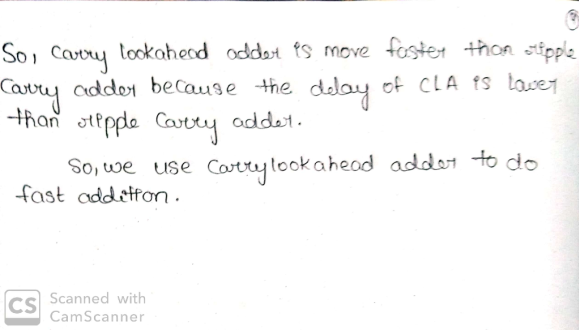 So, Carry lookahead adder is move faster than ripple
Carry adder because the delay of CLA is lower
than ripple Carry adder.
So, we use Carry lookahead adder to do
fast addition.
CS Scanned with
CamScanner